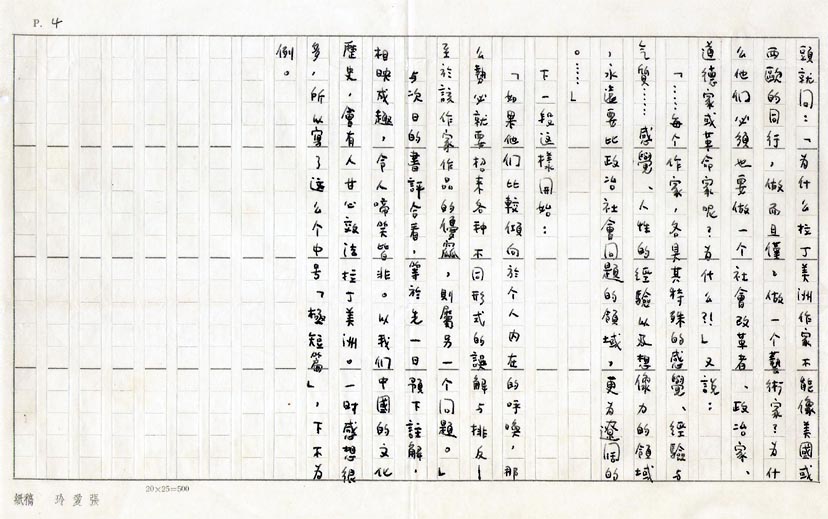 P. 4
頭就问:「为什么拉丁美洲作家不能像美國或
西歐的同行,做而且僅〻做一个藝術家?为什
么他们必須也要做一个社會改革者、政治家、
道德家或革命家呢?为什么?!」又説:
「……每个作家,各具其特殊的感覺、經驗与
气質……感覺、人性的經驗以及想像力的領域
,永遠要比政治社會问題的領域,更为遼闊的
。……」
下一段这樣開始:
「如果他们比較傾向於个人内在的呼喚,那
么勢必就要招来各种不同形式的誤解与排斥—
至於該作家作品的優窳,則屬另一个问題。」
与次日的書評合看,等於先一日預下註解,
相映成趣,令人啼笑皆非。以我们中國的文化
歷史,會有人甘心效法拉丁美洲。一时感想很
多,所以寫了这么个中号「極短篇」,下不为
例。
20×25=500
張愛玲 稿紙